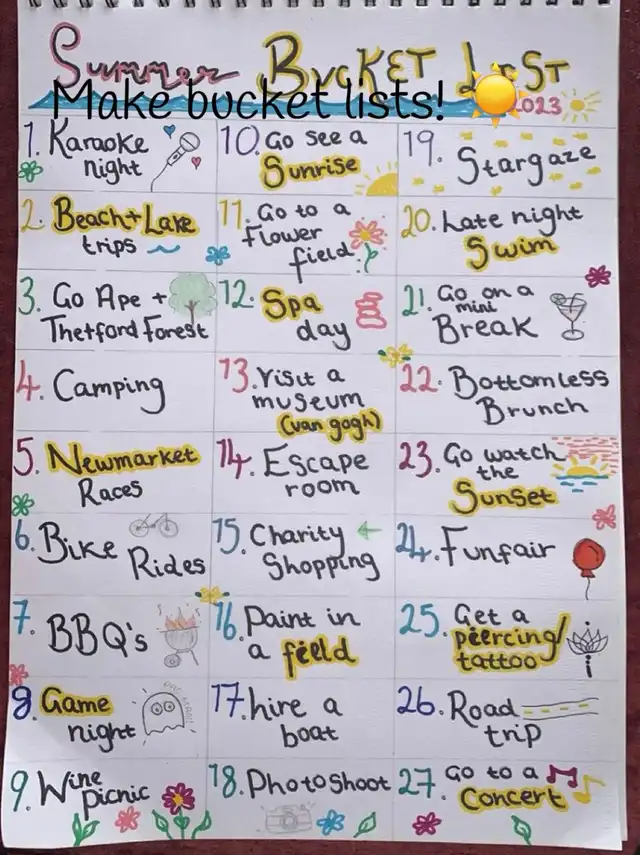 Summer Bucket List
Make bucket lists! ☀️
2023
1. Karaoke
night
2. Beach + Lake
trips
3. Go Ape +
Thetford Forest
4. Camping
5. Newmarket
Races
6. Bike Rides
7. BBQ's
8. Game
night
PAC-MAN!
9. Wine
picnic
10. Go see a
Sunrise
11. Go to a
flower
field
12. Spa
day
13. Visit a
museum
(van gogh)
14. Escape
room
15. Charity
Shopping
16. Paint in
a field
17. hire a
boat
18. Photoshoot
19. Stargaze
20. Late night
Swim
21. Go on a
mini
Break
22. Bottomless
Brunch
23. Go watch
the
Sunset
24. Funfair
25. Get a
piercing/
tattoo
26. Road
trip
27. Go to a
Concert